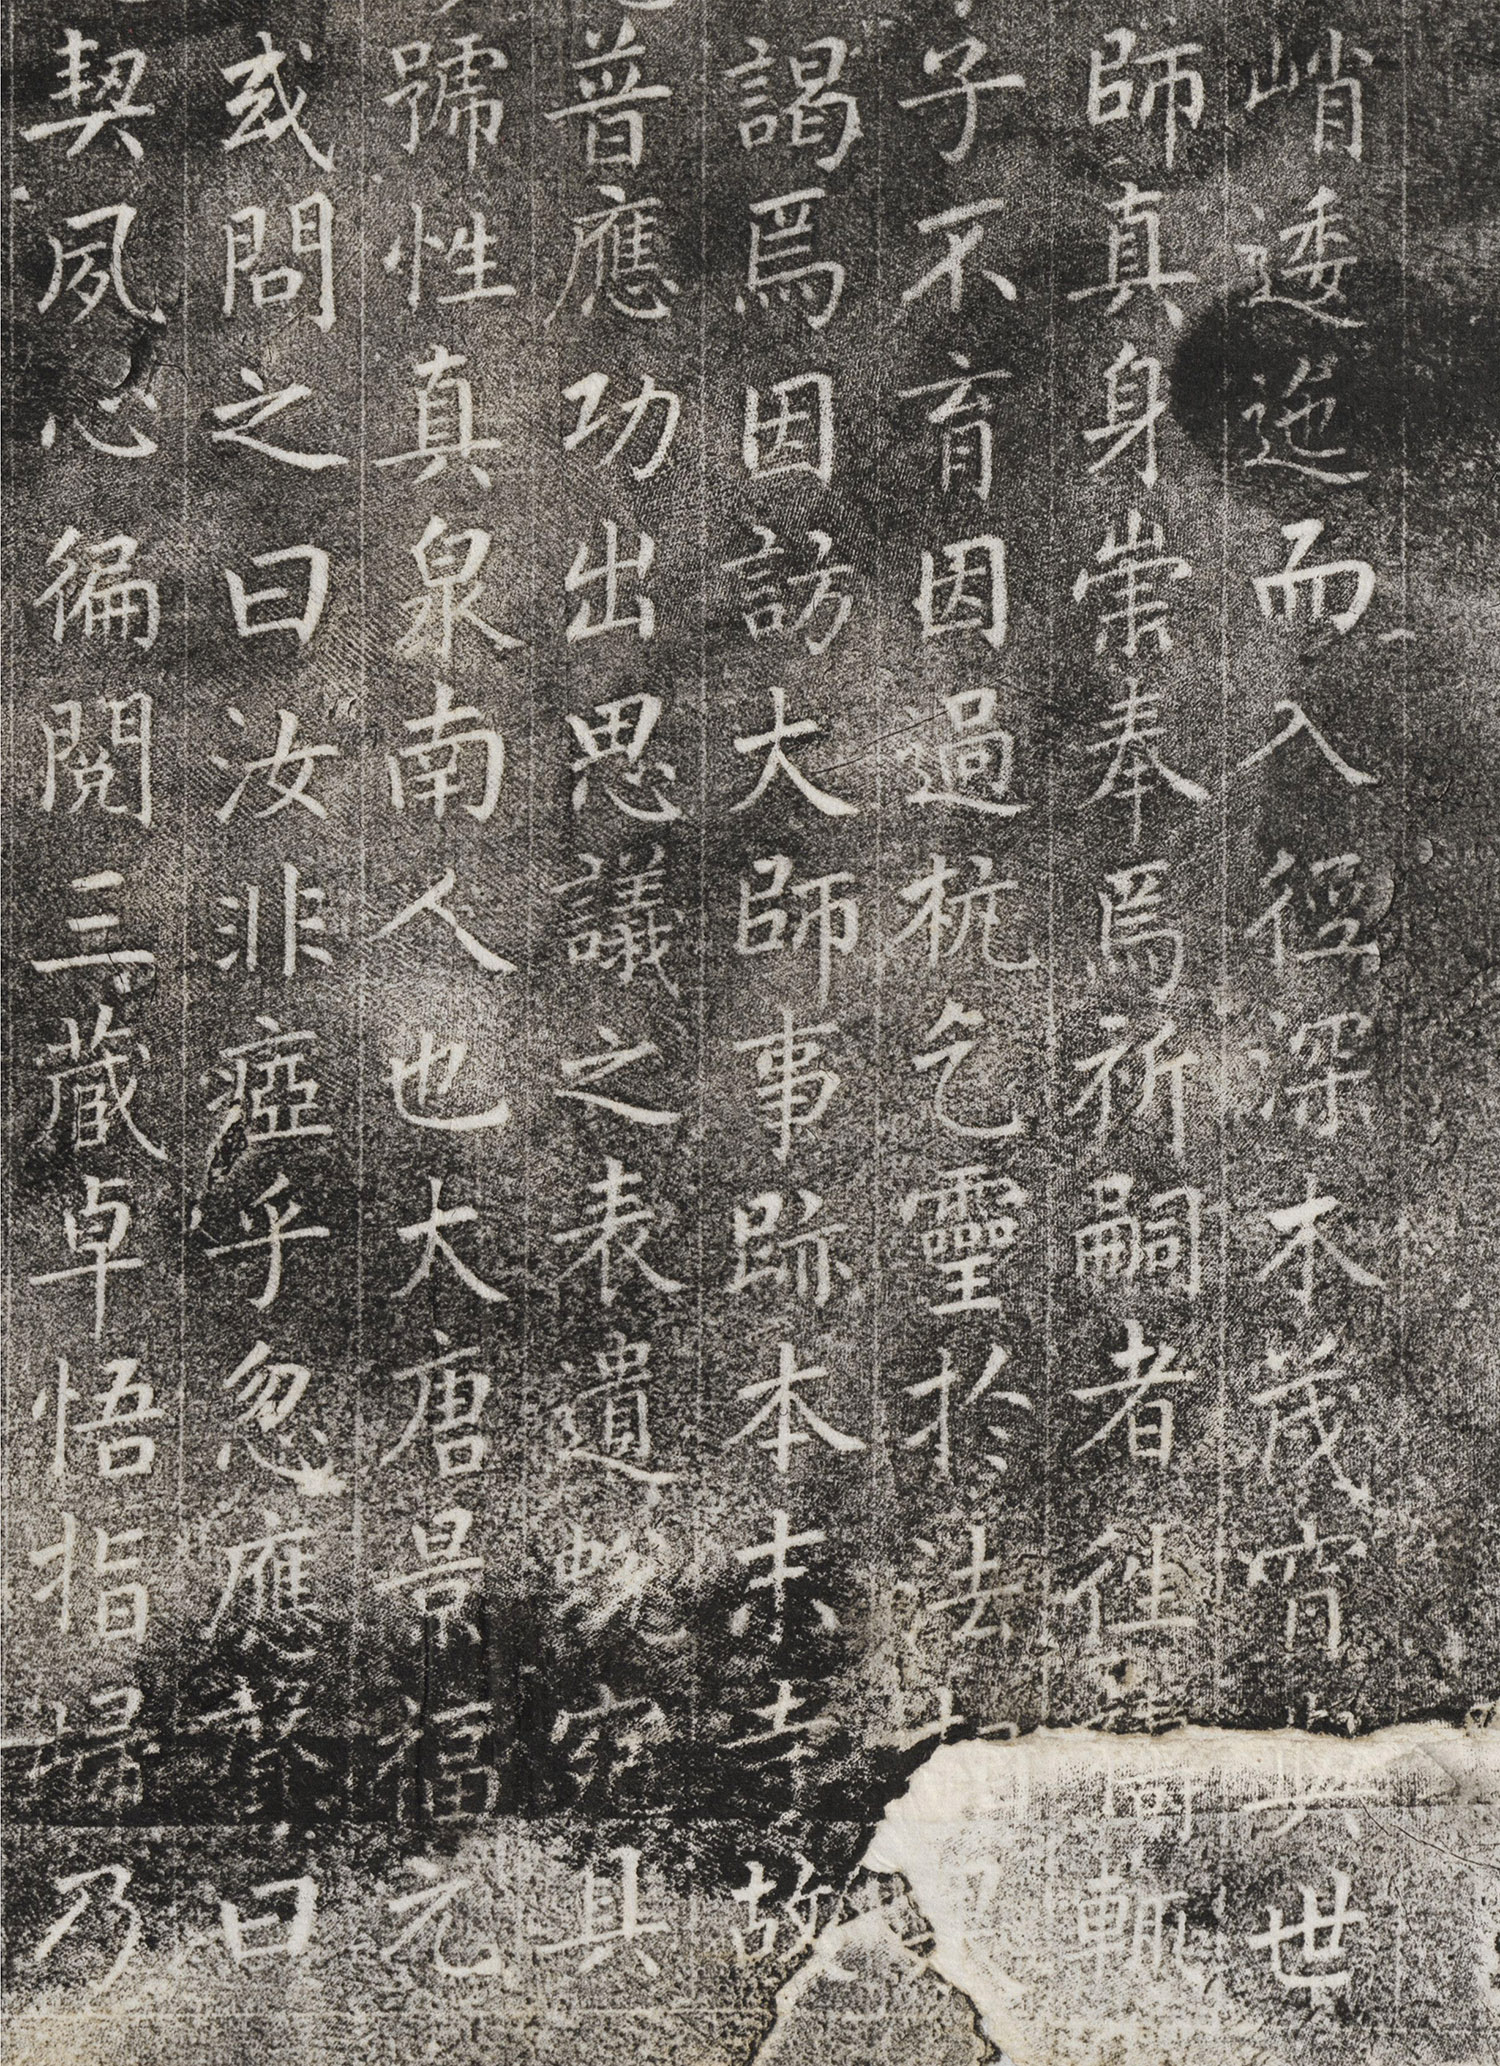 峭逶迤而入徑深木茂世
師真身崇奉焉祈嗣者徃轍
子不育因過杭乞靈於法
謁焉因訪大師事跡本末寺故
普應功出思議之表遺蛻宛具
號性真泉南人也大唐景福元
或問之曰汝非瘂乎忽應聲曰
契夙心徧閱三藏卓悟指歸乃